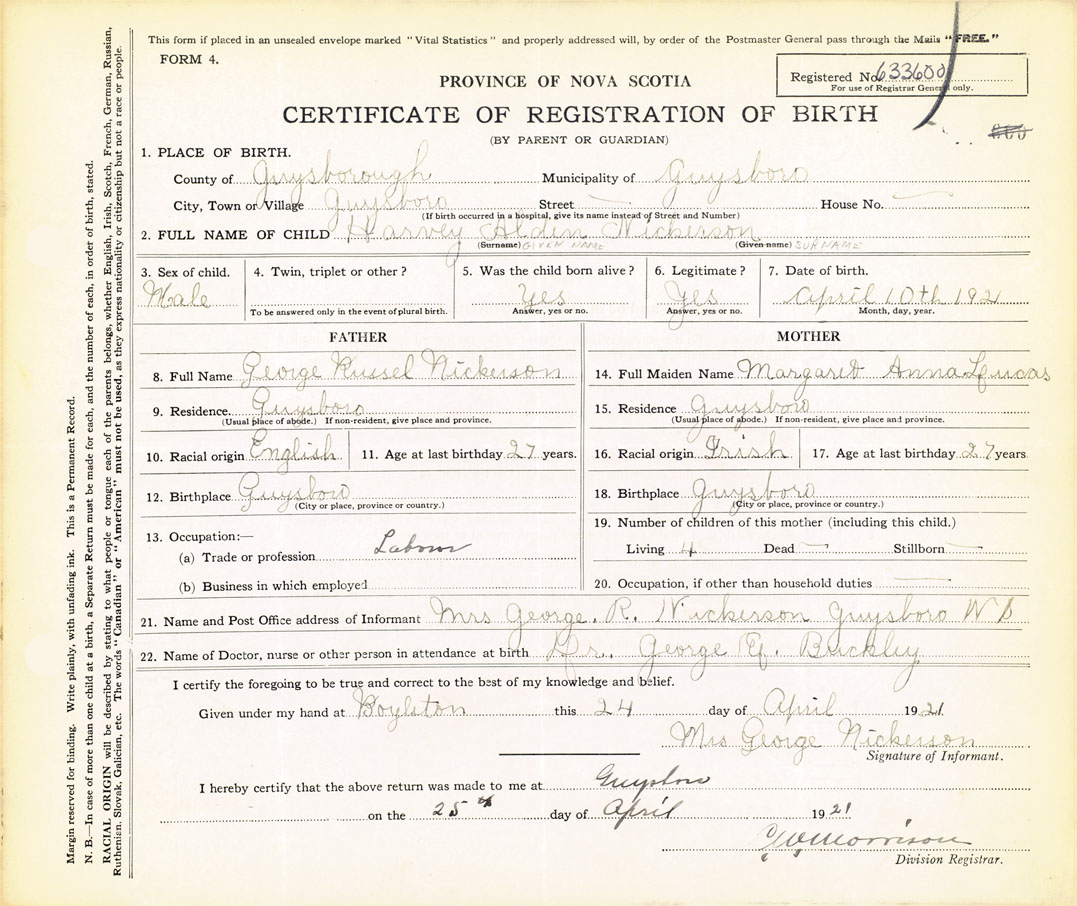 This form if placed in an unsealed envelope marked "Vital Statistics" and properly addressed will, by order of the Postmaster General pass through the Mails "FREE."
FORM 4.
PROVINCE OF NOVA SCOTIA
Registered No. 633600
For use of Registrar General only.
CERTIFICATE OF REGISTRATION OF BIRTH
(BY PARENT OR GUARDIAN)
1. PLACE OF BIRTH.
County of Guysborough Municipality of Guysboro
City, Town or Village Guysboro Street — House No. —
(If birth occurred in a hospital, give its name instead of Street and Number)
2. FULL NAME OF CHILD Harvey Alden Nickerson
(Surname) GIVEN NAME (Given name) SURNAME
3. Sex of child. 4. Twin, triplet or other? 5. Was the child born alive? 6. Legitimate? 7. Date of birth.
Male Yes Yes April 10th 192
To be answered only in the event of plural birth. Answer, yes or no. Answer, yes or no. Month, day, year.
FATHER
8. Full Name George Russel Nickerson
9. Residence. Guysboro
(Usual place of abode.) If non-resident, give place and province.
10. Racial origin English 11. Age at last birthday 27 years.
12. Birthplace Guysboro
(City or place, province or country.)
13. Occupation:—
(a) Trade or profession Labour
(b) Business in which employed
MOTHER
14. Full Maiden Name Margaret Anna Lucas
15. Residence Guysboro
(Usual place of abode.) If non-resident, give place and province.
16. Racial origin Irish 17. Age at last birthday 27 years
18. Birthplace Guysboro
(City or place, province or country.)
19. Number of children of this mother (including this child.)
Living 4 Dead — Stillborn —
20. Occupation, if other than household duties —
21. Name and Post Office address of Informant Mrs George. R. Nickerson Guysboro
22. Name of Doctor, nurse or other person in attendance at birth Dr. George Buckley
I certify the foregoing to be true and correct to the best of my knowledge and belief.
Given under my hand at Boylston this 24 day of April 1921
Mrs George Nickerson
Signature of Informant.
I hereby certify that the above return was made to me at Guysboro
on the 25th day of April 1921
Morrison
Division Registrar.
Margin reserved for binding. Write plainly, with unfading ink. This is a Permanent Record.
N. B.—In case of more than one child at a birth, a Separate Return must be made for each, and the number of each, in order of birth, stated.
RACIAL ORIGIN will be described by stating to what people or tongue each of the parents belongs, whether English, Irish, Scotch, French, German, Russian,
Ruthenian, Slovak, Galician, etc. The words "Canadian" or "American" must not be used, as they express nationality or citizenship but not a race or people.